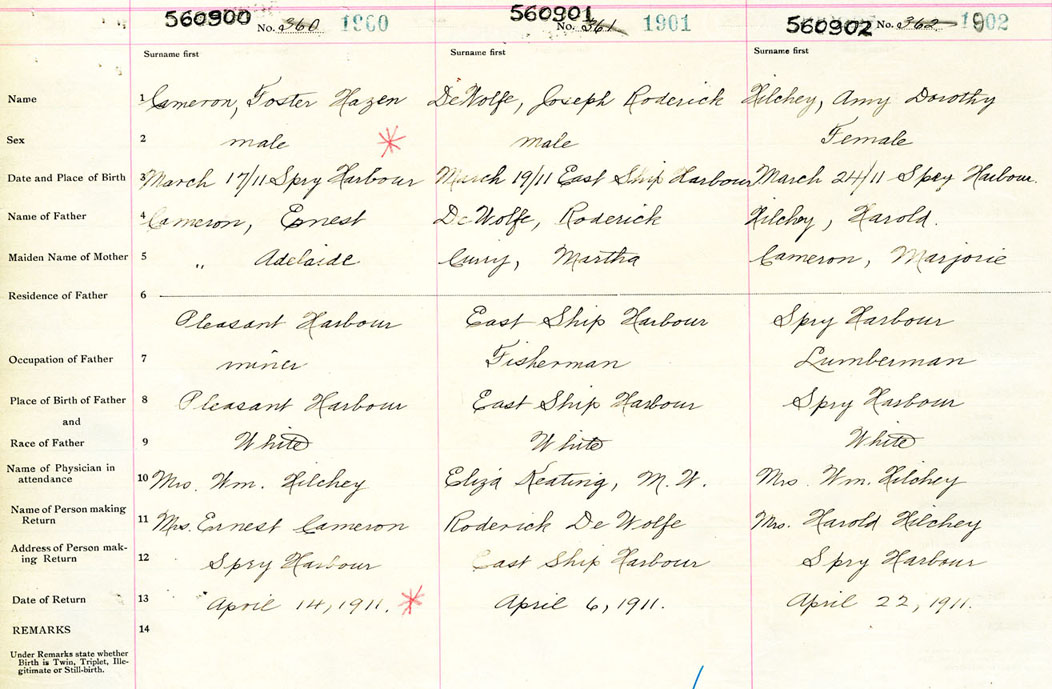 560900 No. 2360 1900 560901 No. 2361 1901 560902 No. 2362 1902
Surname first Surname first Surname first
Name 1 Cameron, Foster Hazen DeWolfe, Joseph Roderick Hilchey, Amy Dorothy
Sex 2 male male Female
Date and Place of Birth 3 March 17/11 Spry Harbour March 19/11 East Ship Harbour March 24/11 Spry Harbour.
Name of Father 4 Cameron, Ernest DeWolfe, Roderick Hilchey, Harold.
Maiden Name of Mother 5 " Adelaide Curry, Martha Cameron, Marjorie
Residence of Father 6
Pleasant Harbour East Ship Harbour Spry Harbour
Occupation of Father 7 miner Fisherman Lumberman
Place of Birth of Father 8 Pleasant Harbour East Ship Harbour Spry Harbour
and
Race of Father 9 White White White
Name of Physician in
attendance 10 Mrs. Wm. Hilchey Eliza Keating, M. W. Mrs. Wm. Hilchey
Name of Person making
Return 11 Mrs. Ernest Cameron Roderick DeWolfe Mrs. Harold Hilchey
Address of Person mak-
ing Return 12 Spry Harbour East Ship Harbour Spry Harbour
Date of Return 13 April 14, 1911. April 6, 1911. April 22, 1911.
REMARKS 14
Under Remarks state whether
Birth is Twin, Triplet, Ille-
gitimate or Still-birth.